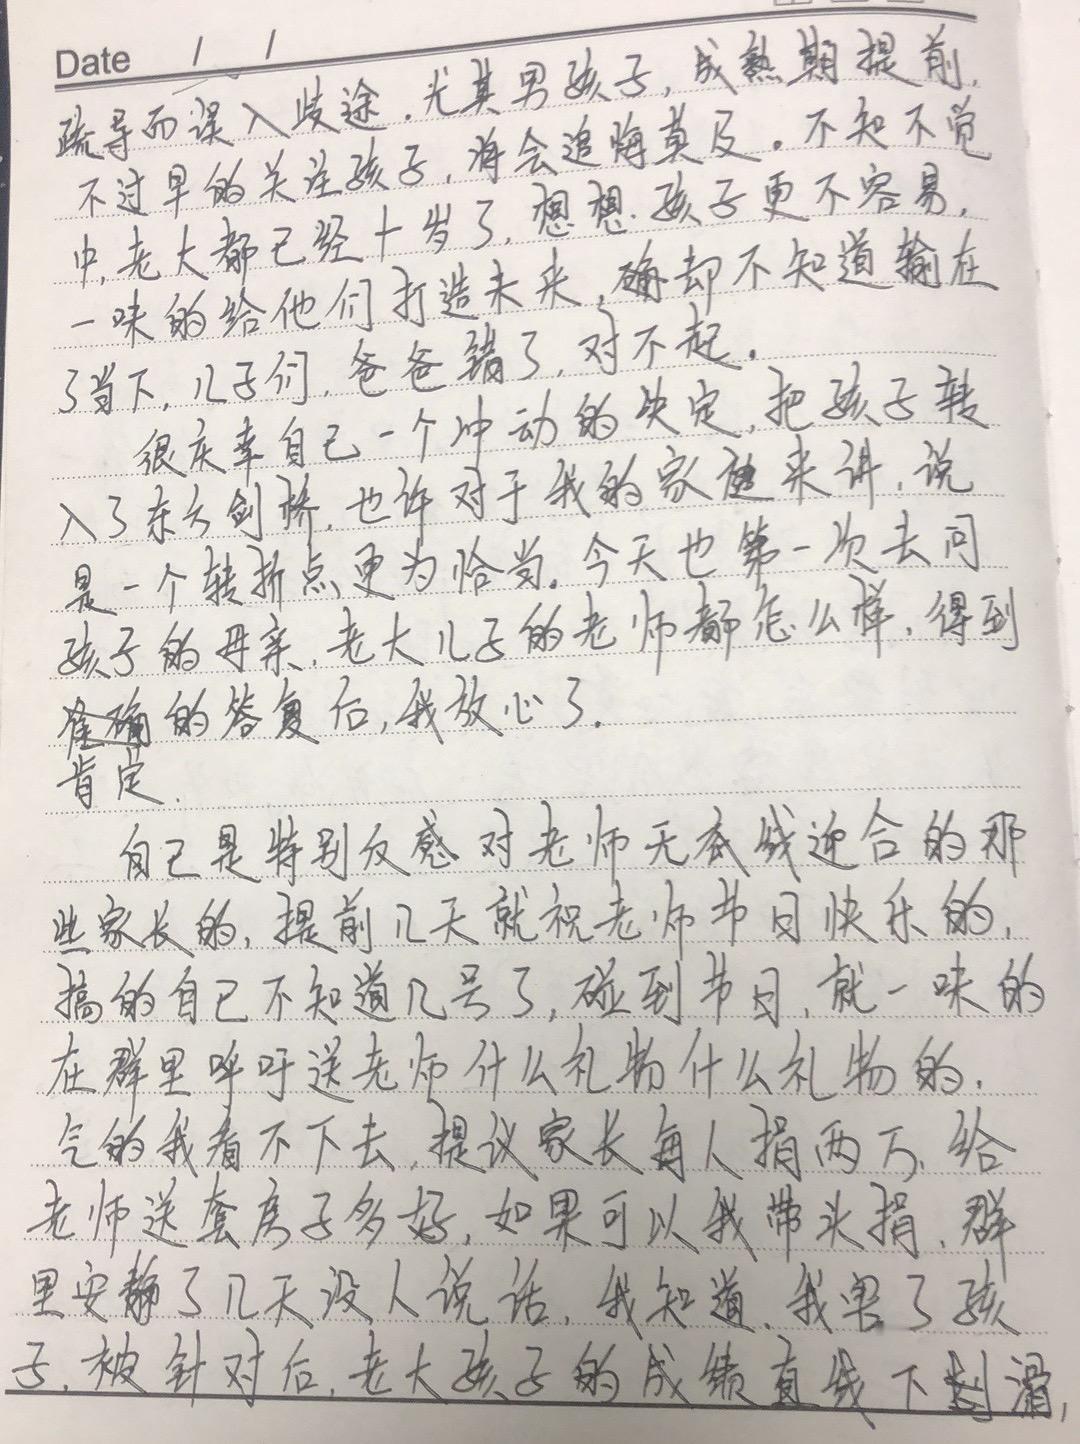 Date / /
疏导而误入歧途.尤其男孩子,成熟期提前,
不过早的关注孩子,将会追悔莫及。不知不觉
中,老大都已经十岁了,想想.孩子更不容易,
一味的给他们打造未来,确却不知道输在
了当下,儿子们,爸爸错了,对不起.
很庆幸自己一个冲动的决定,把孩子转
入了东方剑桥,也许对于我的家庭来讲,说
是一个转折点更为恰当.今天也第一次去问
孩子的母亲,老大儿子的老师都怎么样,得到
准确的答复后,我放心了.
肯定.
自己是特别反感对老师无底线迎合的那
些家长的,提前几天就祝老师节日快乐的,
搞的自己不知道几号了,碰到节日,就一味的
在群里呼吁送老师什么礼物什么礼物的.
气的我看不下去,提议家长每人捐两万,给
老师送套房子多好,如果可以我带头捐,群
里安静了几天没人说话,我知道,我害了孩
子,被针对后,老大孩子的成绩直线下滑,